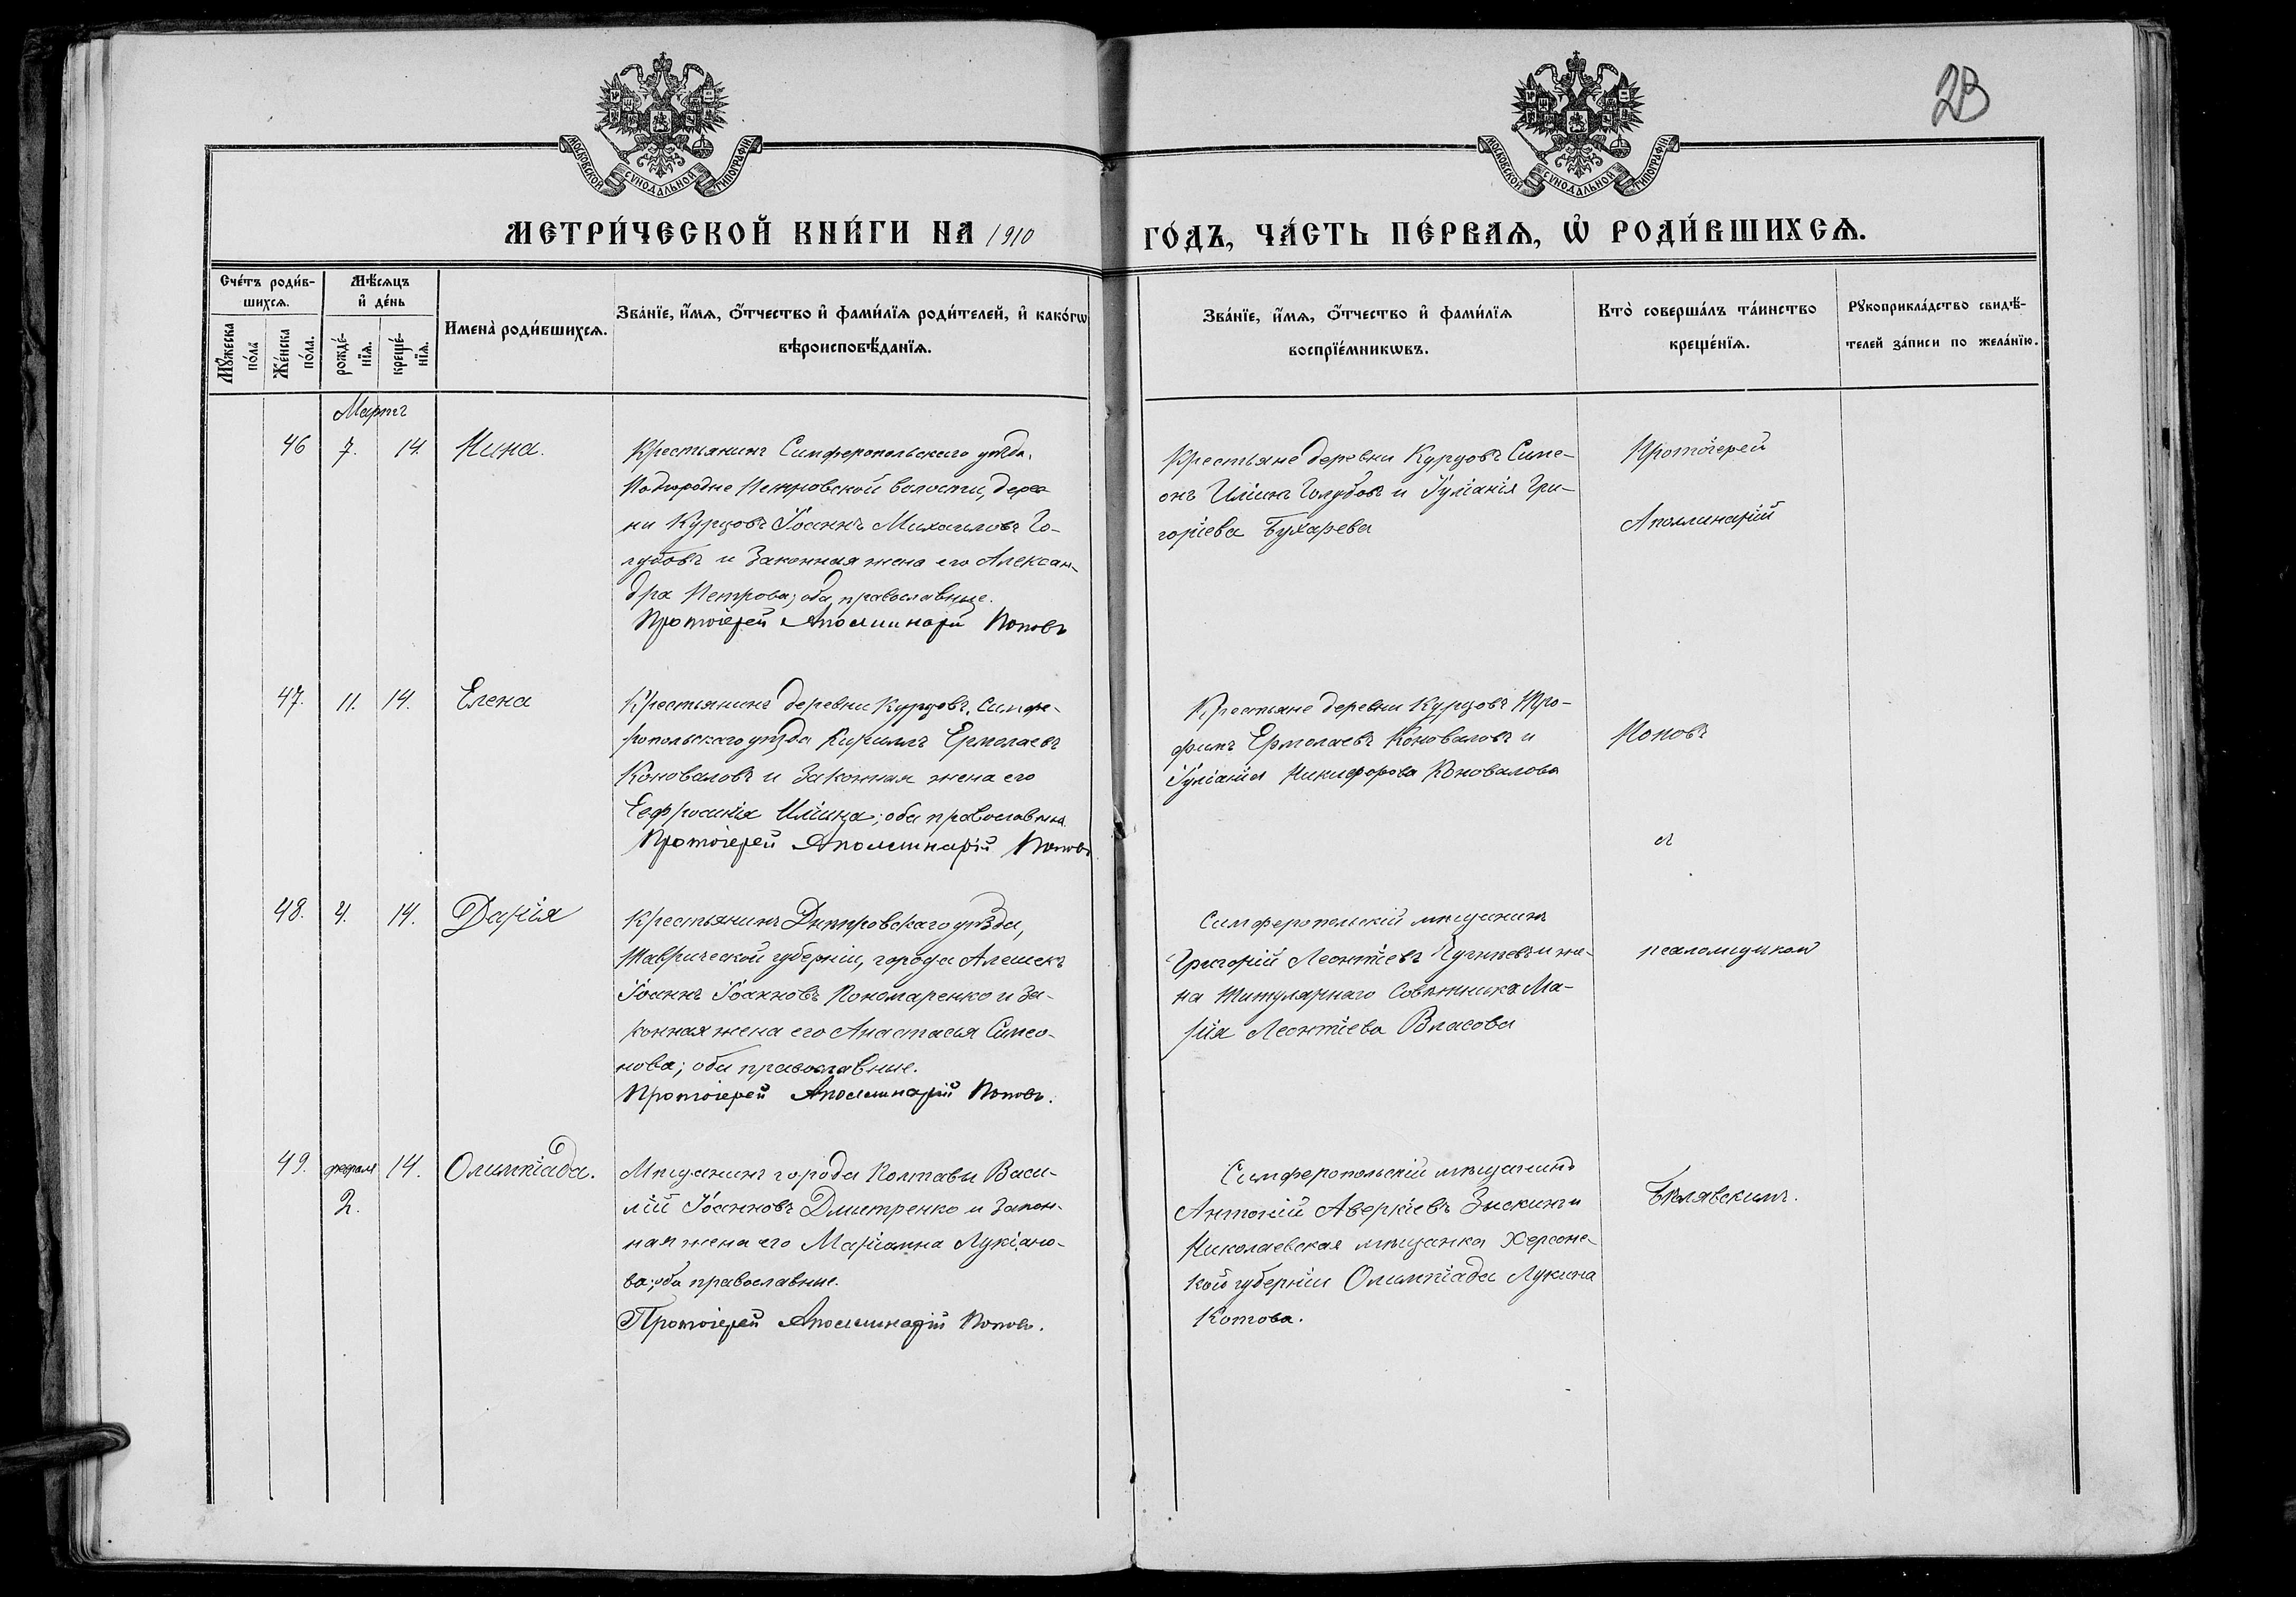 23
МОСКОВСКОЙ СУНОДАЛЬНОЙ ТИПОГРАФІИ
МОСКОВСКОЙ СУНОДАЛЬНОЙ ТИПОГРАФІИ
МЕТРИ́ЧЕСКОЙ КНИ́ГИ НА 1910
ГО́ДЪ, ЧА́СТЬ ПЕ́РВАѦ, Ѡ҆ РОДИ́ВШИХСѦ.
Сче́тъ роди́в-
шихсѧ.
Мꙋ́жеска
по́ла
Же́нска
по́ла.
Мѣ́сѧцъ
и҆ де́нь
рожде́-
нїѧ.
креще́-
нїѧ.
Имена̀ роди́вшихсѧ.
Зва́нїе, и҆́мѧ, ѻ҆́тчество и҆ фами́лїѧ роди́телей, и҆ како́гѡ
вѣроисповѣ́данїѧ.
Зва́нїе, и҆́мѧ, ѻ҆́тчество и҆ фами́лїѧ
воспрїе́мникѡвъ.
Кто̀ соверша́лъ та́инство
креще́нїѧ.
Рꙋкоприкла́дство свидѣ́-
телей за́писи по жела́нїю.
Мартъ
46 7. 14. Нина.
Крестьянинъ Симферопольскаго уѣзда,
Подгородне Петровской волости, дерев
ни Курцовъ Іоаннъ Михаиловъ Го-
лубовъ и Законная жена его Алексан-
дра Петрова; оба православные.
Протоіерей Аполлинарій Поповъ
Крестьяне деревни Курцовъ Симе-
онъ Иліинъ Голубовъ и Іуліанія Гри-
горіева Бухарева
Протоіерей
Аполлинарій
47. 11. 14. Елена
Крестьянинъ деревни Курцовъ, Симфе-
ропольскаго уѣзда Кириллъ Ермолаевъ
Коноваловъ и Законная жена его
Евфросинія Иліина; оба православны
Протоіерей Аполлинарій Поповъ
Крестьяне деревни Курцовъ Тро-
фимъ Ермолаевъ Коноваловъ и
Іуліанія Никифорова Коновалова
Поповъ
съ
48. 4. 14. Дарія
Крестьянинъ Днѣпровскаго уѣзда,
Таврической губерніи, города Алешекъ
Іоаннъ Іоанновъ Пономаренко и За-
конная жена его Анастасія Симео-
нова; оба православные.
Протоіерей Аполлинарій Поповъ.
Симферопольскій мѣщанинъ
Григорій Леонтіевъ и же-
на Титулярнаго Совѣтника Ма-
рія Леонтіева Власова
псаломщикомъ
49. февраля 14. Олимпіада.
2.
Мѣщанинъ города Полтавы Васи-
лій Іоанновъ Дмитренко и Закон-
ная жена его Маріанна Лукіано-
ва; оба православные.
Протоіерей Аполлинарій Поповъ.
Симферопольскій мѣщанинъ
Антоній Аверкіевъ Зыскинъ и
Николаевская мѣщанка Херсонс-
кой губерніи Олимпіада Лукина
Котова.
Бѣлявскимъ.